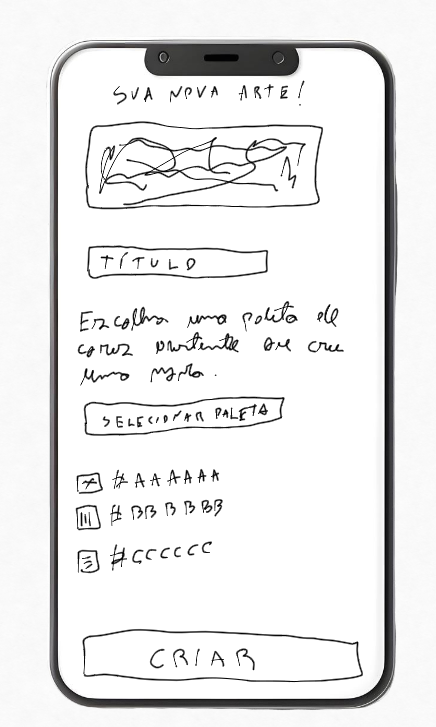 SUA NOVA ARTE!
TÍTULO
Escolha uma paleta de
cores existente ou crie
uma nova.
SELECIONAR PALETA
#AAAAAA
#BBBBBB
#CCCCCC
CRIAR